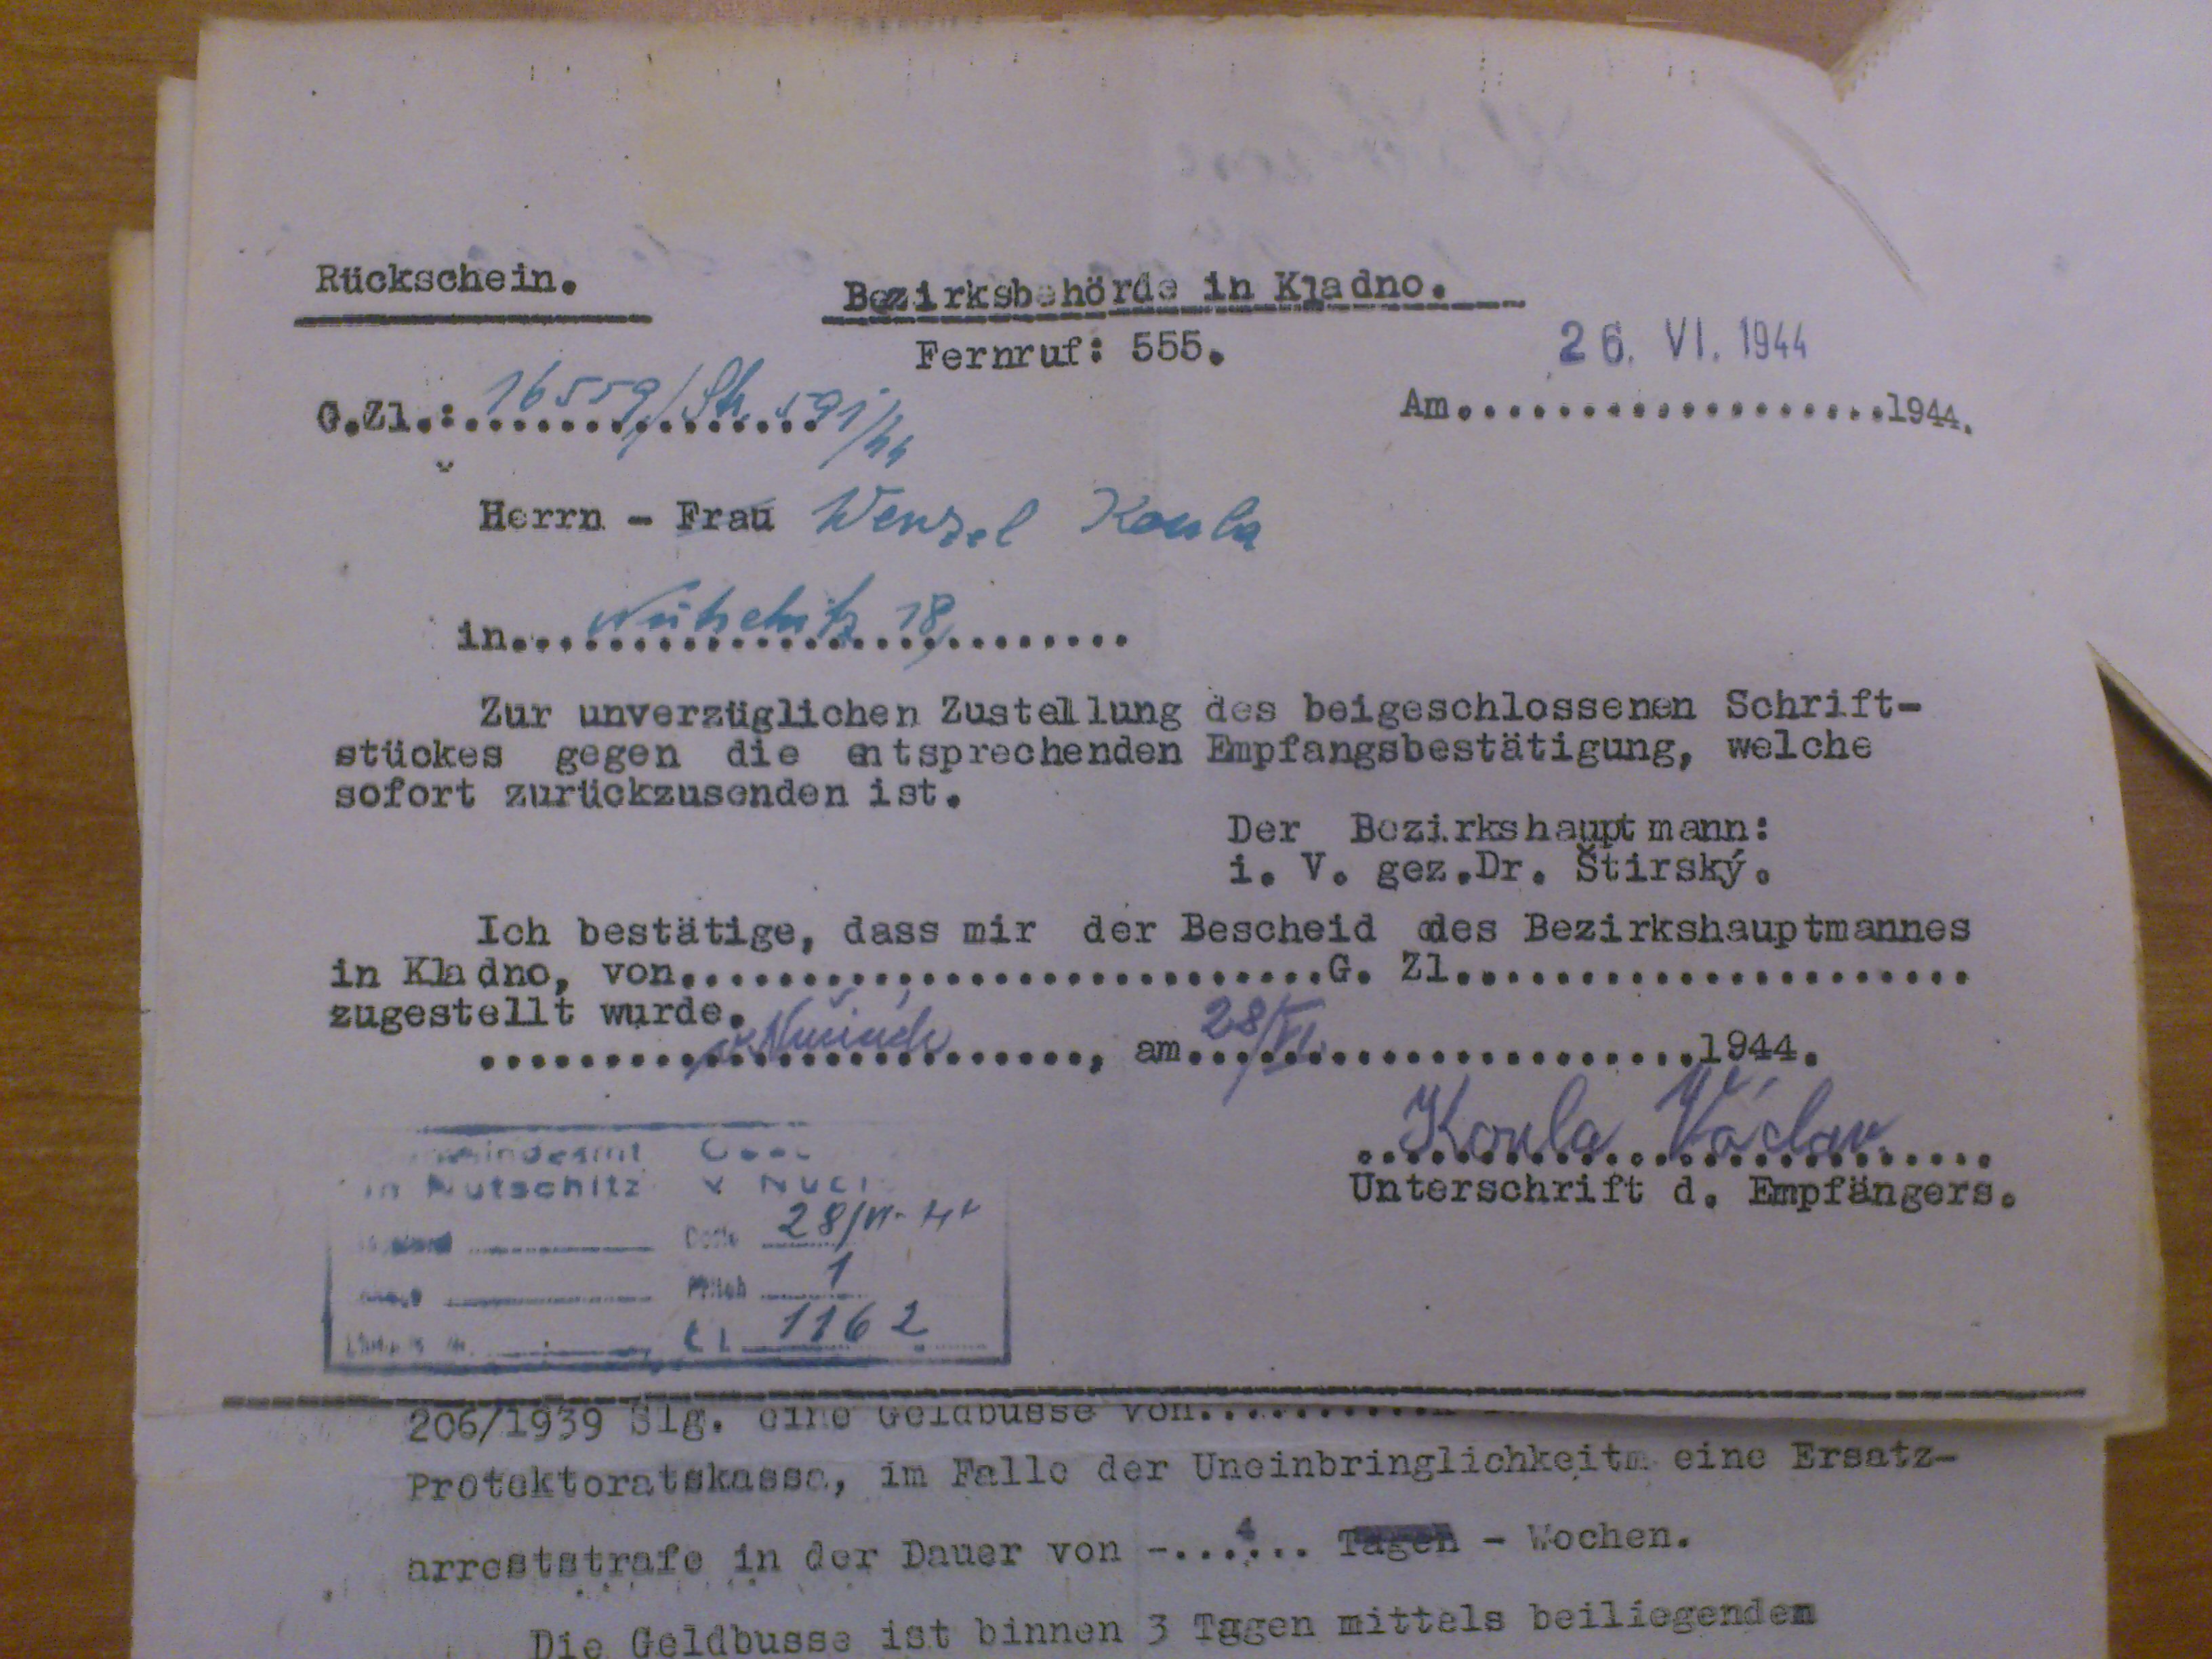 Rückschein.
Bezirksbehörde in Kladno.
Fernruf: 555.
26. VI. 1944
G.Zl.:................ 16559/
Am....................1944.
Herrn - Frau Wenzel Koula
in... Nutschitz 18, .........
Zur unverzüglichen Zustellung des beigeschlossenen Schrift-
stückes gegen die entsprechenden Empfangsbestätigung, welche
sofort zurückzusenden ist.
Der Bezirkshauptmann:
i. V. gez.Dr. Štirský.
Ich bestätige, dass mir der Bescheid des Bezirkshauptmannes
in Kladno, von..........................G. Zl.....................
zugestellt wurde.
........................., am 28/VI. ....................1944.
Koula Václav
Unterschrift d. Empfängers.
in Nutschitz
28/VI. 44
1
1162
206/1939 Slg. eine Geldbusse von..........
Protektoratskassa, im Falle der Uneinbringlichkeit eine Ersatz-
arreststrafe in der Dauer von -..4... Tagen - Wochen.
Die Geldbusse ist binnen 3 Tagen mittels beiliegenden